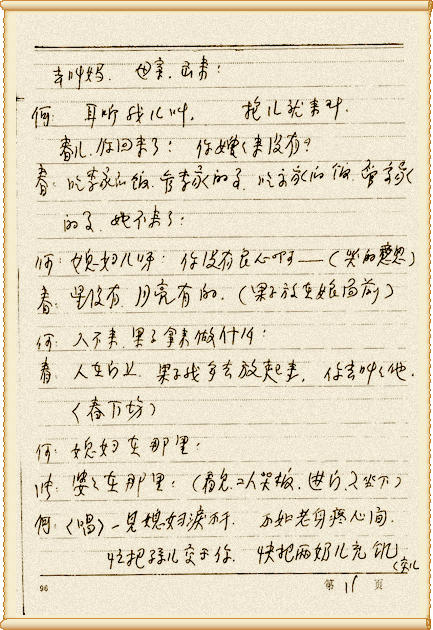 叫妈. 母亲. 出来:
何: 耳听我儿叫, 抱儿就来到.
春儿. 你回来了: 你嫂嫂来没有?
春: 吃李家的饭. 管李家的事. 吃王家的饭, 管王家
的事. 她不来了:
何: 媳妇儿呀: 你没有良心啊——(哭的意思)
春: 没有. 月亮有的. (果子放在娘面前)
何: 人不来. 果子拿来做什么:
春: 人在. 果子我去放起来, 你去叫叫他.
(春下场)
何: 媳妇在那里:
洪: 婆婆在那里: (看见. 二人哭板. 进 又坐下)
何: (唱) 一见媳妇淚不干. 不如老身疼心间.
忙把孩儿交于你. 快把两奶儿充饥 (交儿
96 第 11 页